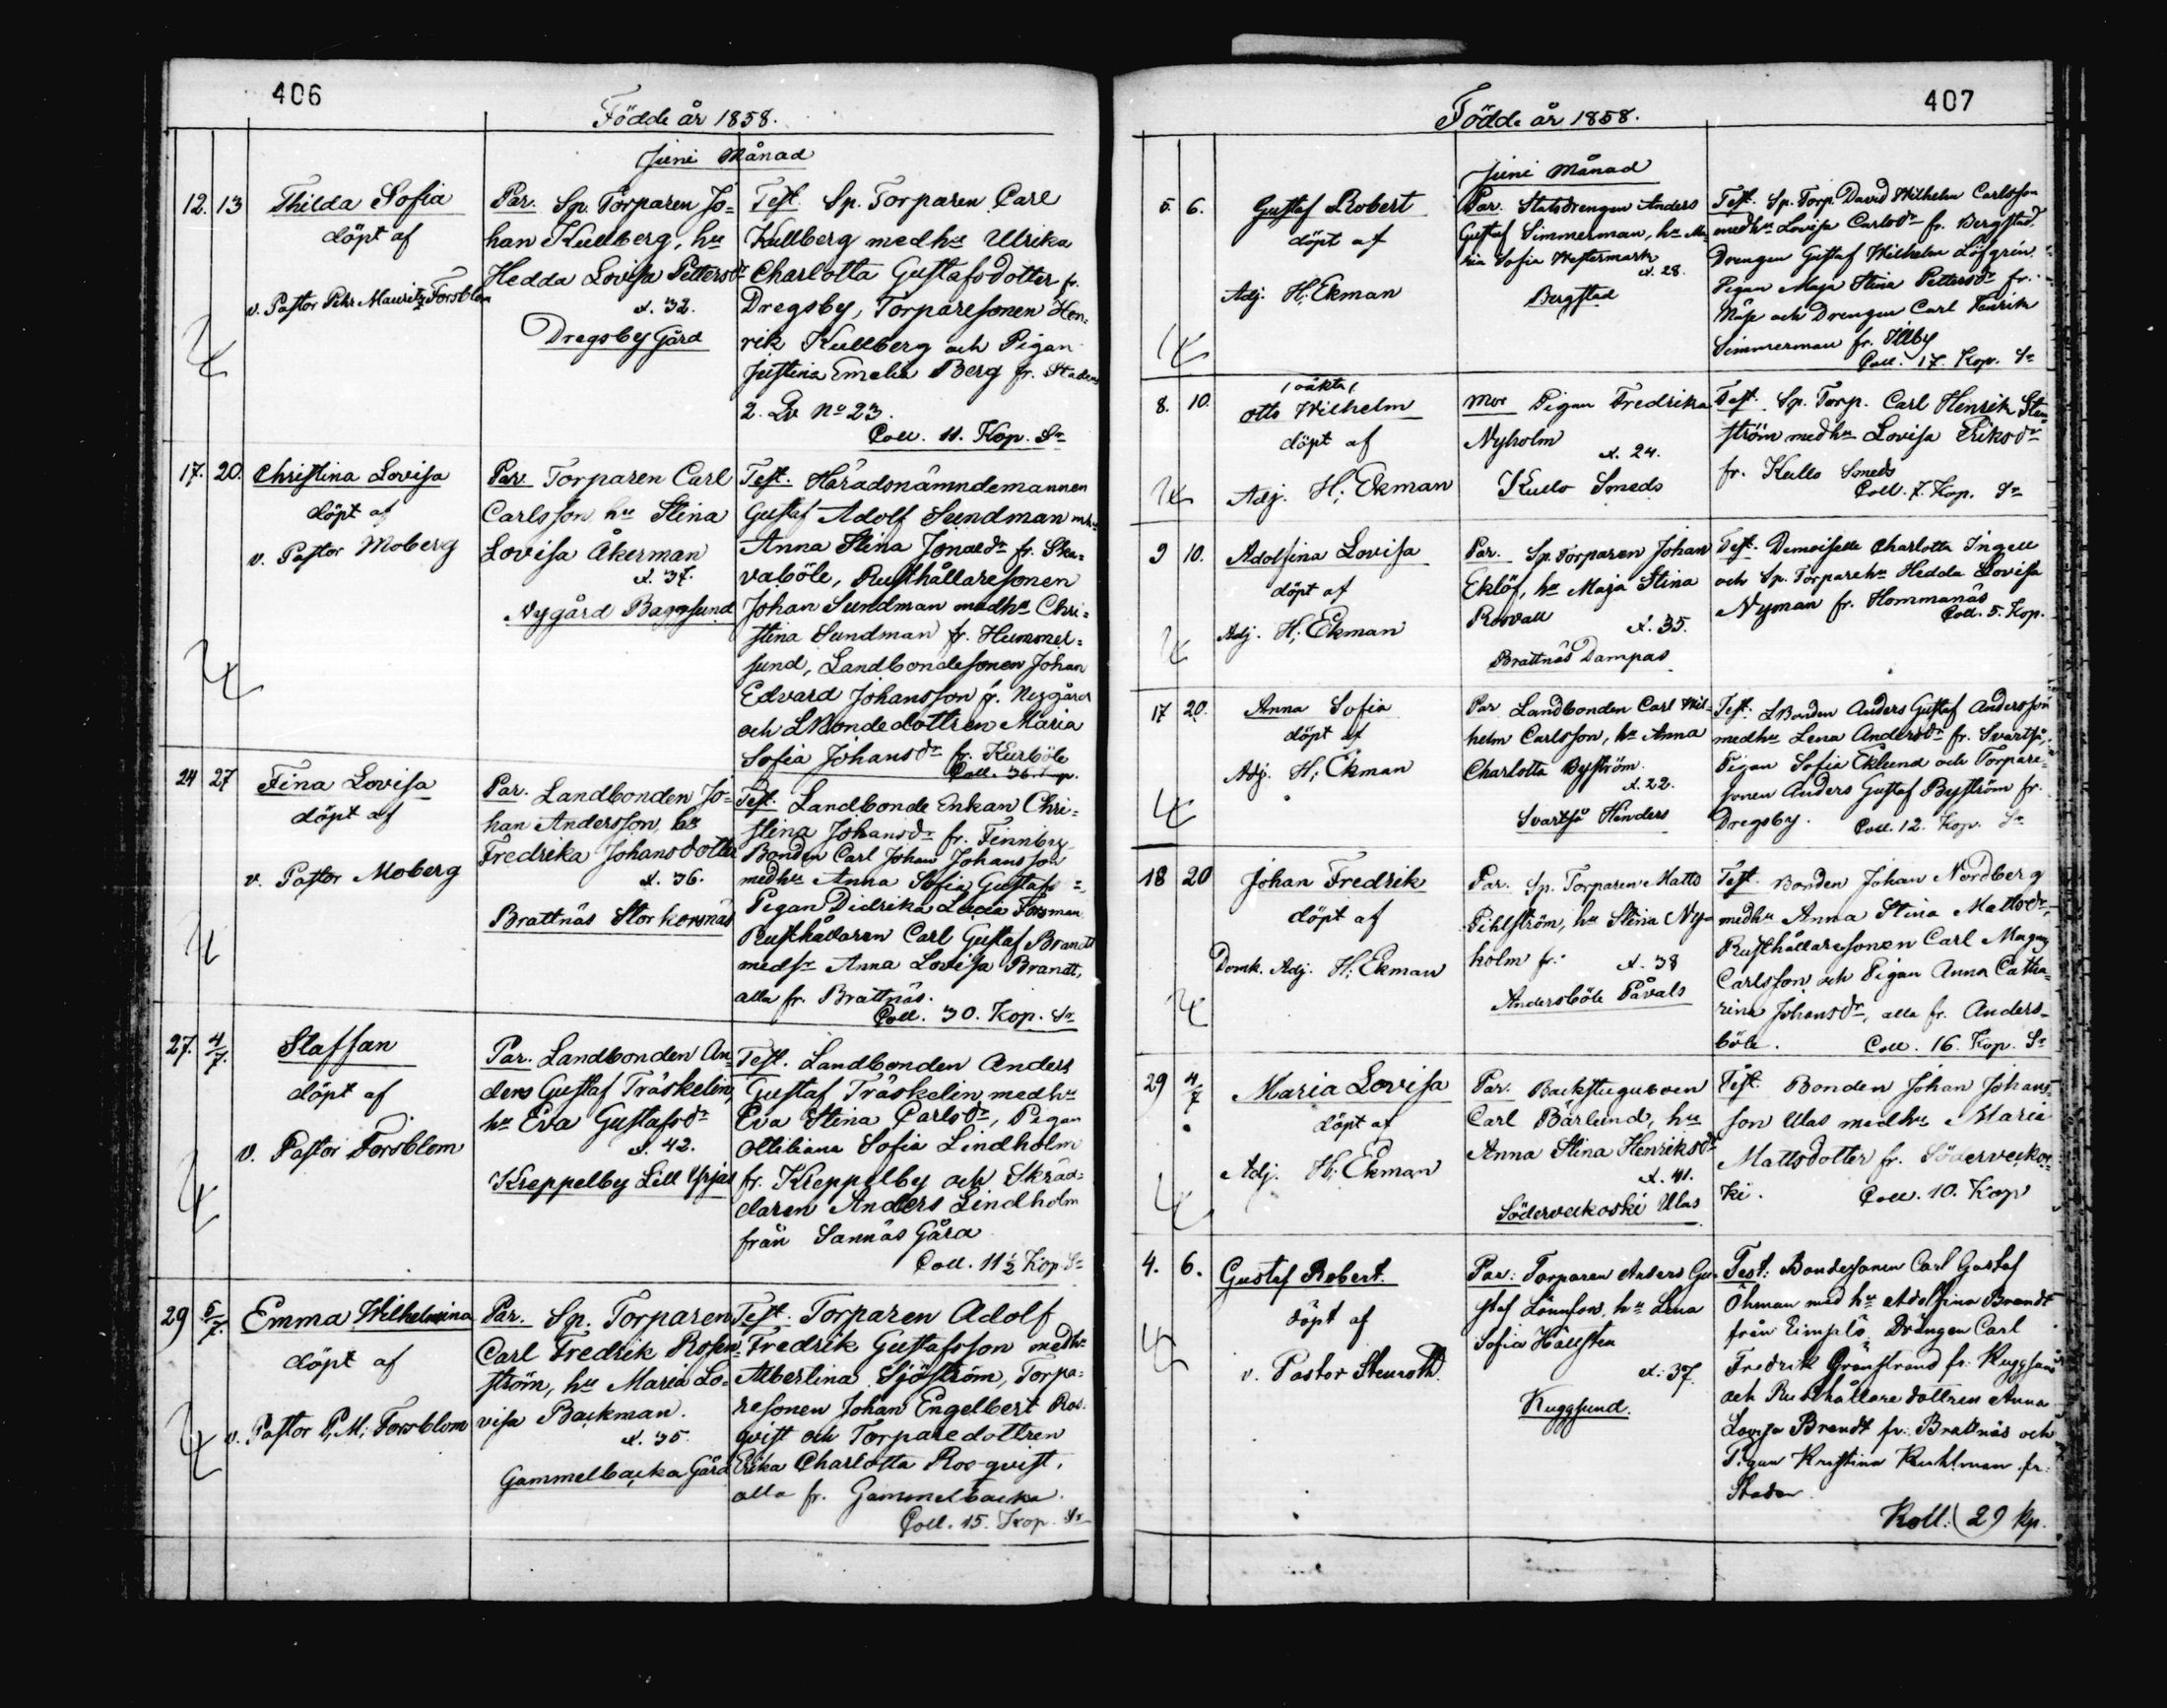 406
Födde år 1858.
Juni Månad
12. 13
Thilda Sofia
döpt af
v. Pastor Pehr Mauritz Forsblom
Par. Sp. Torparen Jo=
han Kullberg, hu
Hedda Lovisa Pettersdr
A. 32.
Dregsby Gård
Test. Sp. Torparen Carl
Kullberg med hu Ulrika
Charlotta Gustafsdotter fr.
Dregsby, Torparesonen Hen=
rik Kullberg och Pigan
Justina Emelia Berg fr. Stadens
2. Qv No 23.
Coll. 11. Kop. Sr
17. 20.
Christina Lovisa
döpt af
v. Pastor Moberg
Par. Torparen Carl
Carlsson hu Stina
Lovisa Åkerman
A. 37.
Nygård Baggsund
Test. Häradsnämndemannen
Gustaf Adolf Sundman m hu
Anna Stina Jonasdr fr. Ska=
vaböle, Rusthållaresonen
Johan Sundman med hu Chri=
stina Sundman fr. Hummel=
sund, Landbondesonen Johan
Edvard Johansson fr. Nygård
och LBondedottren Maria
Sofia Johansdr fr. Kurböle
Coll. 36. Kop.
24 27
Fina Lovisa
döpt af
v. Pastor Moberg
Par. Landbonden Jo=
han Andersson, hu
Fredrika Johansdotter
A. 36.
Brattnäs Storkorsnäs
Test. Landbonde Enkan Chri=
stina Johansdr fr. Finnby
Bonden Carl Johan Johansson
med hu Anna Sofia Gustafs =
Pigan Didrika Lucia Forsman
Rusthållaren Carl Gustaf Brandt
med sr Anna Lovisa Brandt,
alla fr. Brattnäs.
Coll. 30. Kop. Sr
27. 4/7.
Staffan
döpt af
v. Pastor Forsblom
Par. Landbonden An=
ders Gustaf Träskelin,
hu Eva Gustafsdr
A. 42.
Kreppelby Lill Ypjas
Test. Landbonden Anders
Gustaf Träskelin med hu
Eva Stina Carlsdr, Pigan
Ottiliana Sofia Lindholm
fr. Kreppelby och Skräd=
daren Anders Lindholm
från Sannäs Gård
Coll. 11 1/2 Kop. Sr
29 5/7.
Emma Wilhelmina
döpt af
v. Pastor P. M: Forsblom
Par. Sp. Torparen
Carl Fredrik Rosen=
ström, hu Maria Lo=
visa Backman.
A. 35.
Gammelbacka Gård
Test. Torparen Adolf
Fredrik Gustafsson med hu
Albertina Sjöström, Torpa=
resonen Johan Engelbert Ros=
qvist och Torparedottren
Erika Charlotta Rosqvist,
alla fr. Gammelbacka.
Coll. 15. Kop. Sr
407
Födde år 1858.
Juni Månad
5. 6.
Gustaf Robert
döpt af
Adj. H: Ekman
Par. Statsdrengen Anders
Gustaf Simmerman, hu Ma=
ria Sofia Westermark
A. 28.
Bergstad
Test. Sp. Torp. David Wilhelm Carlsson
med hu Lovisa Carlsdr fr. Bergstad,
Drengen Gustaf Wilhelm Löfgrén
Pigan Maja Stina Pettersdr fr.
Näse och Drengen Carl Henrik
Simmerman fr. Illby
Coll. 17. Kop. Sr
8. 10.
(oäkta)
Otto Wilhelm
döpt af
Adj. H: Ekman
Mor Pigan Fredrika
Nyholm
A. 24.
Kullo Smeds
Test. Sp. Torp. Carl Henrik Sten
ström med hu Lovisa Eriksdr
fr. Kullo Smeds
Coll. 7. Kop. Sr
9 10.
Adolfina Lovisa
döpt af
Adj. H: Ekman
Par. Sp. Torparen Johan
Eklöf, hu Maja Stina
Rosvall
A. 35.
Brattnäs Dampas
Test. Demoiselle Charlotta Ingell
och Sp. Torpare hu Hedda Lovisa
Nyman fr. Hommanäs
Coll. 5. Kop.
17 20.
Anna Sofia
döpt af
Adj. H: Ekman
Par Landbonden Carl Wil=
helm Carlsson, hu Anna
Charlotta Byström.
A. 22.
Svartså Hinders
Test. LBonden Anders Gustaf Andersson
med hu Lena Andersdr fr. Svartså,
Pigan Sofia Eklund och Torpare=
sonen Anders Gustaf Byström fr.
Dregsby. Coll. 12. Kop. Sr
18 20
Johan Fredrik
döpt af
Domk. Adj. H: Ekman
Par. Sp. Torparen Matts
Pihlström, hu Stina Ny=
holm fr.
A. 38
Andersböle Påvals
Test. Bonden Johan Nordberg
med hu Anna Stina Mattsdr,
Rusthållaresonen Carl Magnus
Carlsson och Pigan Anna Catha=
rina Johansdr, alla fr. Anders=
böle. Coll. 16. Kop. Sr
29 4/7
Maria Lovisa
döpt af
Adj. H: Ekman
Par. Backstuguboen
Carl Bärlund, hu
Anna Stina Henriksdr
A. 41.
Söderveckoski Ulas
Test. Bonden Johan Johans=
son Ulas med hu Maria
Mattsdotter fr. Söderveckos=
ki. Coll. 10. Kop
4. 6.
Gustaf Robert.
döpt af
v. Pastor Stenroth.
Par: Torparen Anders Gu=
staf Lönnfors, hu Lena
Sofia Hällsten
A: 37.
Kuggsund.
Test: Bondesonen Carl Gustaf
Öhman med hu Adolfina Brandt
från Eimplä, Drängen Carl
Fredrik Grönstrand fr: Kuggsund
och Rusthållare dottren Anna
Lovisa Brandt fr: Brattnäs och
Pigan Kristina Kuhlman fr:
Staden.
Koll: 29 kp.